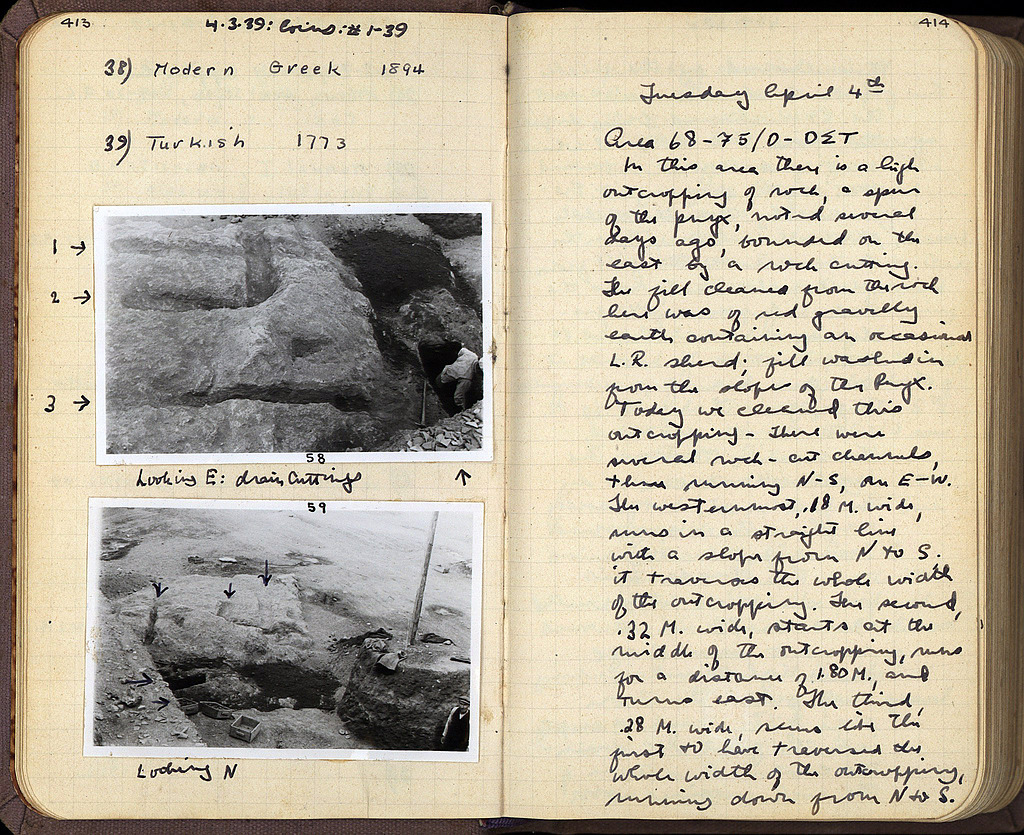 413
4.3.39: Coins: #1-39
38) Modern Greek 1894
39) Turkish 1773
1 →
2 →
3 →
58
Looking E: drain Cuttings
59
Looking N
414
Tuesday April 4th
Area 68-75/O-OΣT
In this area there is a high
outcropping of rock, a spur
of the pnyx, noted several
days ago, bounded on the
east by a rock cutting.
The fill cleaned from the rock
here was of red gravelly
earth containing an occasional
L.R. sherd; fill washed in
from the slopes of the Pnyx.
Today we cleaned this
outcropping - There were
several rock-cut channels,
three running N-S, one E-W.
The westernmost, .18 M. wide,
runs in a straight line
with a slope from N to S.
it traverses the whole width
of the outcropping. The second,
.32 M. wide, starts at the
middle of the outcropping, runs
for a distance of 1.80 M., and
turns east. The third,
.28 M. wide, seems like the
first to have traversed the
whole width of the outcropping,
running down from N to S.